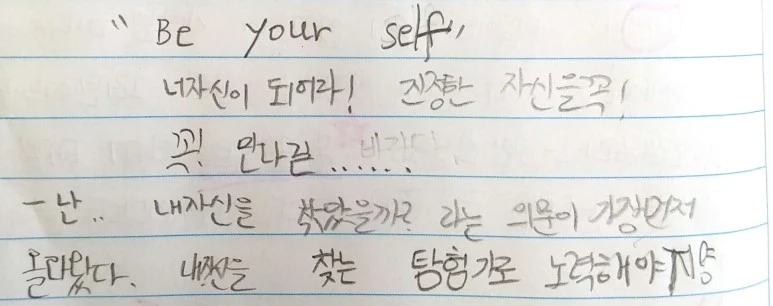 “ Be your self ”
너자신이 되어라! 진정한 자신을꼭!
꼭! 만나길 ...... 바란다.
- 난.. 내자신을 찾았을까? 라는 의문이 가장먼저
올라왔다. 찾는 탐험가로 노력해야지